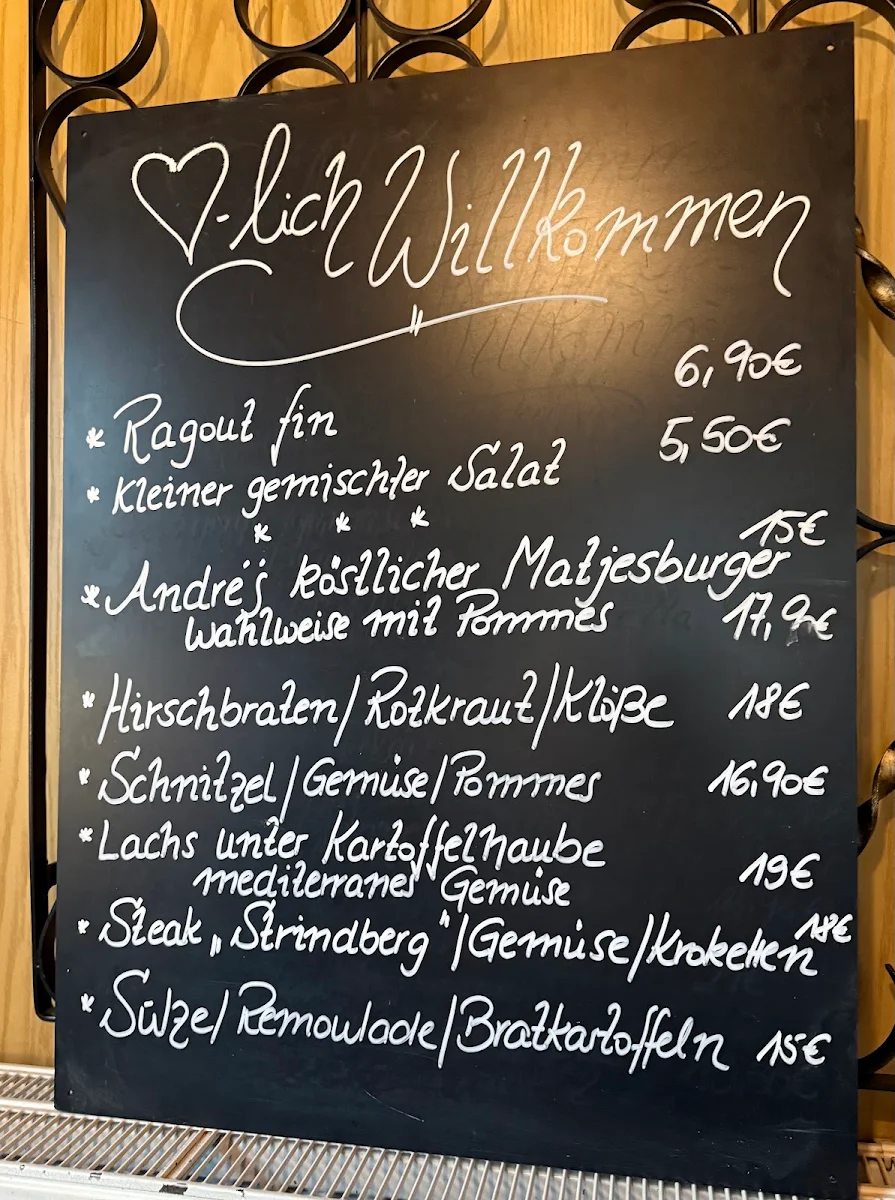 ♡-lich Willkommen
* Ragout fin 6,90€
* Kleiner gemischter Salat 5,50€
* * *
* André's köstlicher Matjesburger 15€
wahlweise mit Pommes
* Hirschbraten/Rotkraut/Klöße 18€
* Schnitzel/Gemüse/Pommes 16,90€
* Lachs unter Kartoffelhaube
mediterranes Gemüse 19€
* Steak „Strindberg"/Gemüse/Kroketten 18€
* Sülze/Remoulade/Bratkartoffeln 15€